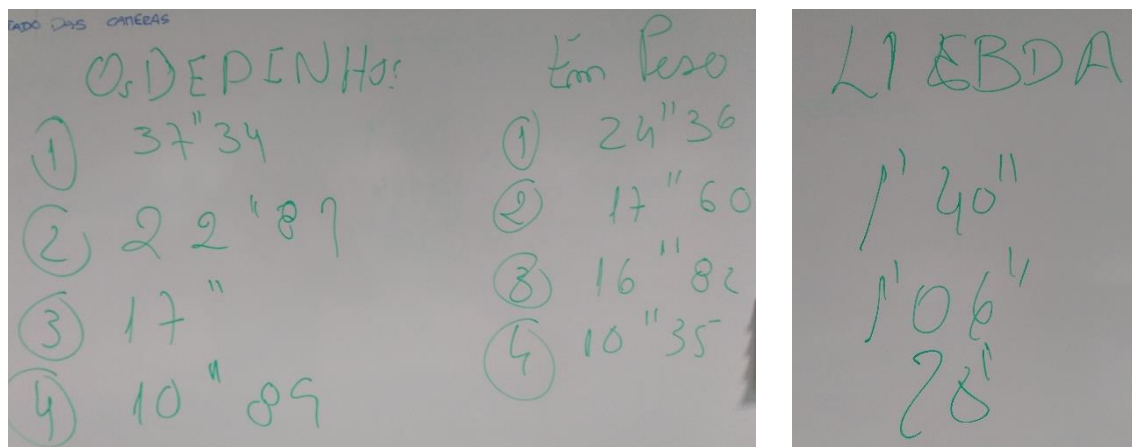 TADO DAS CAMERAS
OS DEDINHOS:
① 37"34
② 22"87
③ 17"
④ 10"89
Em Peso
① 24"36
② 17"60
③ 16"82
④ 10"35
1'40"
1'06"